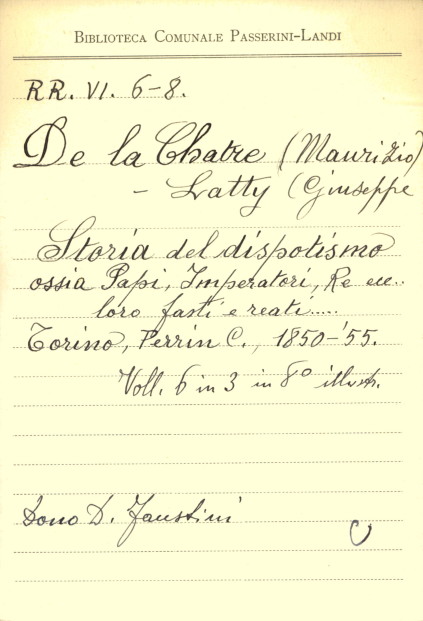 BIBLIOTECA COMUNALE PASSERINI-LANDI
RR. VI. 6-8.
De la Chatre (Maurizio)
- Latty (Giuseppe
Storia del dispotismo
ossia Papi, Imperatori, Re ecc..
loro fasti e reati.....
Torino, Perrin C., 1850-'55.
Voll. 6 in 3 in 8º illustr.
Dono D. Faustini